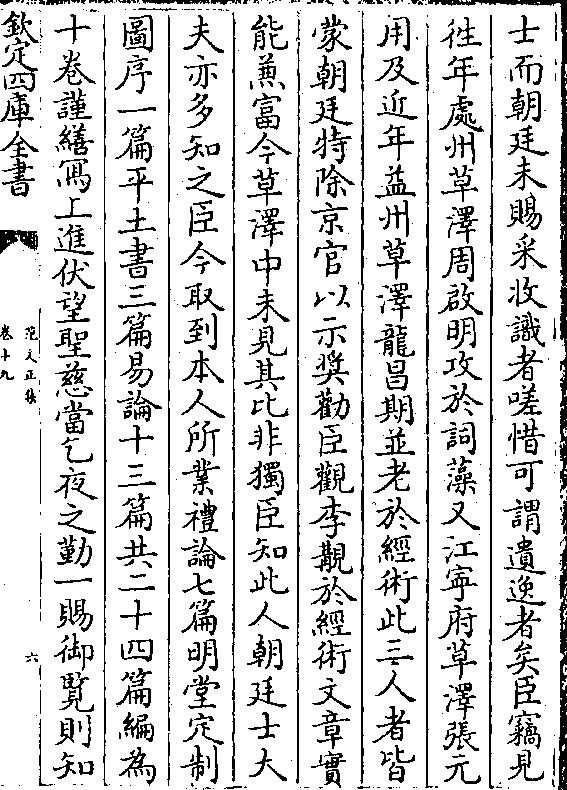 士而朝廷未賜采收識者嗟惜可謂遺逸者矣臣竊見
徃年處州草澤周啟明攻於詞藻又江寧府草澤張元
用及近年益州草澤龍昌期並老於經術此三人者皆
蒙朝廷特除京官以示奨勸臣觀李覯於經術文章實
能兼富今草澤中未見其比非獨臣知此人朝廷士大
夫亦多知之臣今取到本人所業禮論七篇明堂定制
圖序一篇平土書三篇易論十三篇共二十四篇編為
十卷謹繕寫上進伏望聖慈當乞夜之勤一賜御覧則知
欽定四庫全書
范文正集
卷十九
六